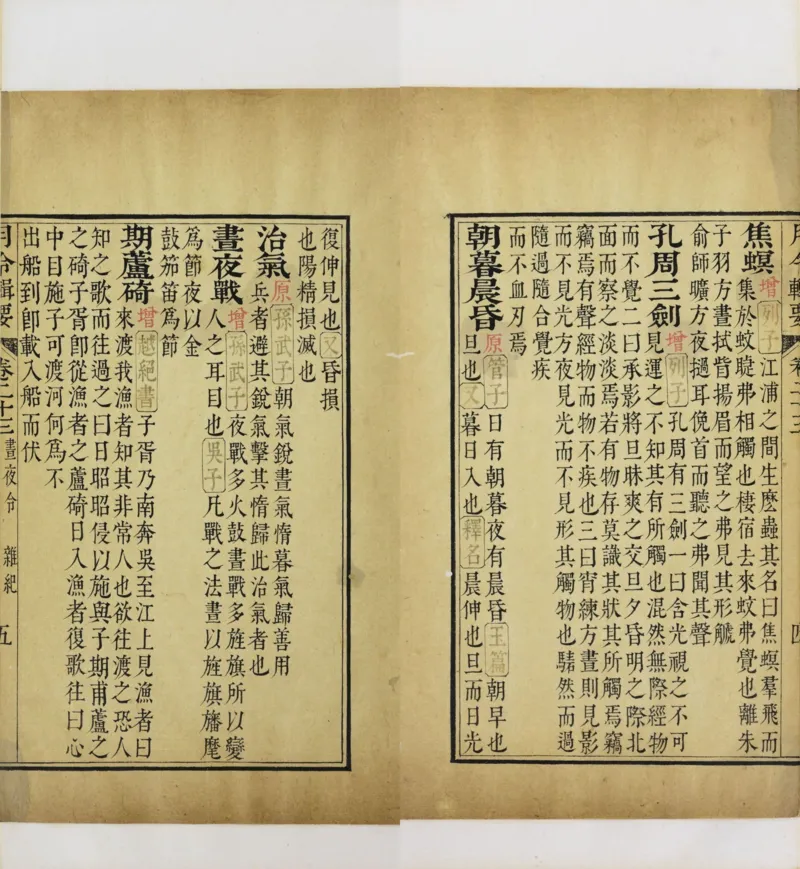 月令輯要
卷二十三
四
焦螟增列子江浦之間生麽蟲其名曰焦螟羣飛而
集於蚊睫弗相觸也棲宿去來蚊弗覺也離朱
子羽方晝拭眥揚眉而望之弗見其形䚦
俞師曠方夜擿耳俛首而聽之弗聞其聲
孔周三劍增列子孔周有三劍一曰含光視之不可
見運之不知其有所觸也混然無際經物
而不覺二曰承影將旦昧爽之交旦夕昏明之際北
面而察之淡淡焉若有物存莫識其狀其所觸焉竊
竊焉有聲經物而物不疾也三曰宵練方晝則見影
而不見光方夜見光而不見形其觸物也騞然而過
隨過隨合覺疾
而不血刃焉
朝暮晨昏原管子日有朝暮夜有晨昏玉篇朝早也
旦也又暮日入也釋名晨伸也旦而日光
復伸見也又昏損
也陽精損滅也
治氣原孫武子朝氣銳晝氣惰暮氣歸善用
兵者避其銳氣擊其惰歸此治氣者也
晝夜戰增孫武子夜戰多火鼓晝戰多旌旗所以變
人之耳目也吳子凡戰之法晝以旌旗旛麾
爲節夜以金
鼓笳笛爲節
期蘆碕增越紀書子胥乃南奔吳至江上見漁者曰
來渡我漁者知其非常人也欲往渡之恐人
知之歌而往過之曰日昭昭侵以施與子期甫蘆之
之碕子胥卽從漁者之蘆碕日入漁者復歌往曰心
中目施子可渡河何爲不
出船到卽載入船而伏
月令輯要
卷二十三 晝夜令 雜紀
五